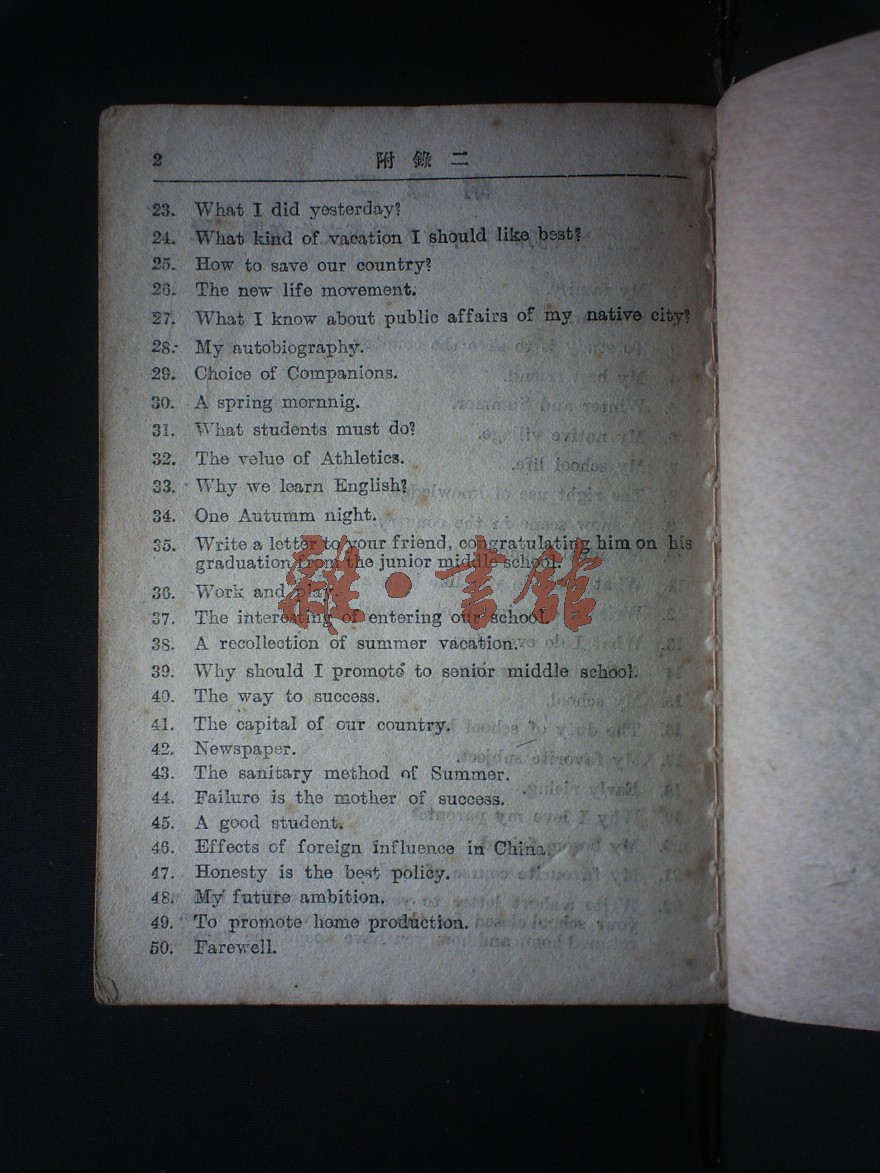 2 附錄二
23. What I did yesterday?
24. What kind of vacation I should like best?
25. How to save our country?
26. The new life movement.
27. What I know about public affairs of my native city?
28. My autobiography.
29. Choice of Companions.
30. A spring mornnig.
31. What students must do?
32. The velue of Athletics.
33. Why we learn English?
34. One Autumm night.
35. Write a letter to your friend, congratulating him on his
graduation from the junior middle school.
36. Work and play.
37. The interesting of entering our school.
38. A recollection of summer vacation.
39. Why should I promote to senior middle school.
40. The way to success.
41. The capital of our country.
42. Newspaper.
43. The sanitary method of Summer.
44. Failure is the mother of success.
45. A good student.
46. Effects of foreign influence in China.
47. Honesty is the best policy.
48. My future ambition.
49. To promote home production.
50. Farewell.
雜·書館